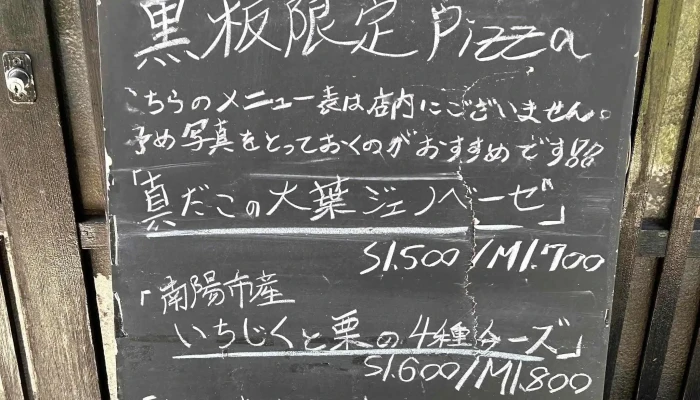 黒板限定Pizza
こちらのメニュー表は店内にございません。
予め写真をとっておくのがおすすめです
「真だこの大葉ジェノベーゼ」
S1.500/M1.700
「南陽市産
いちじくと栗の4種チーズ」
S1.600/M1.800